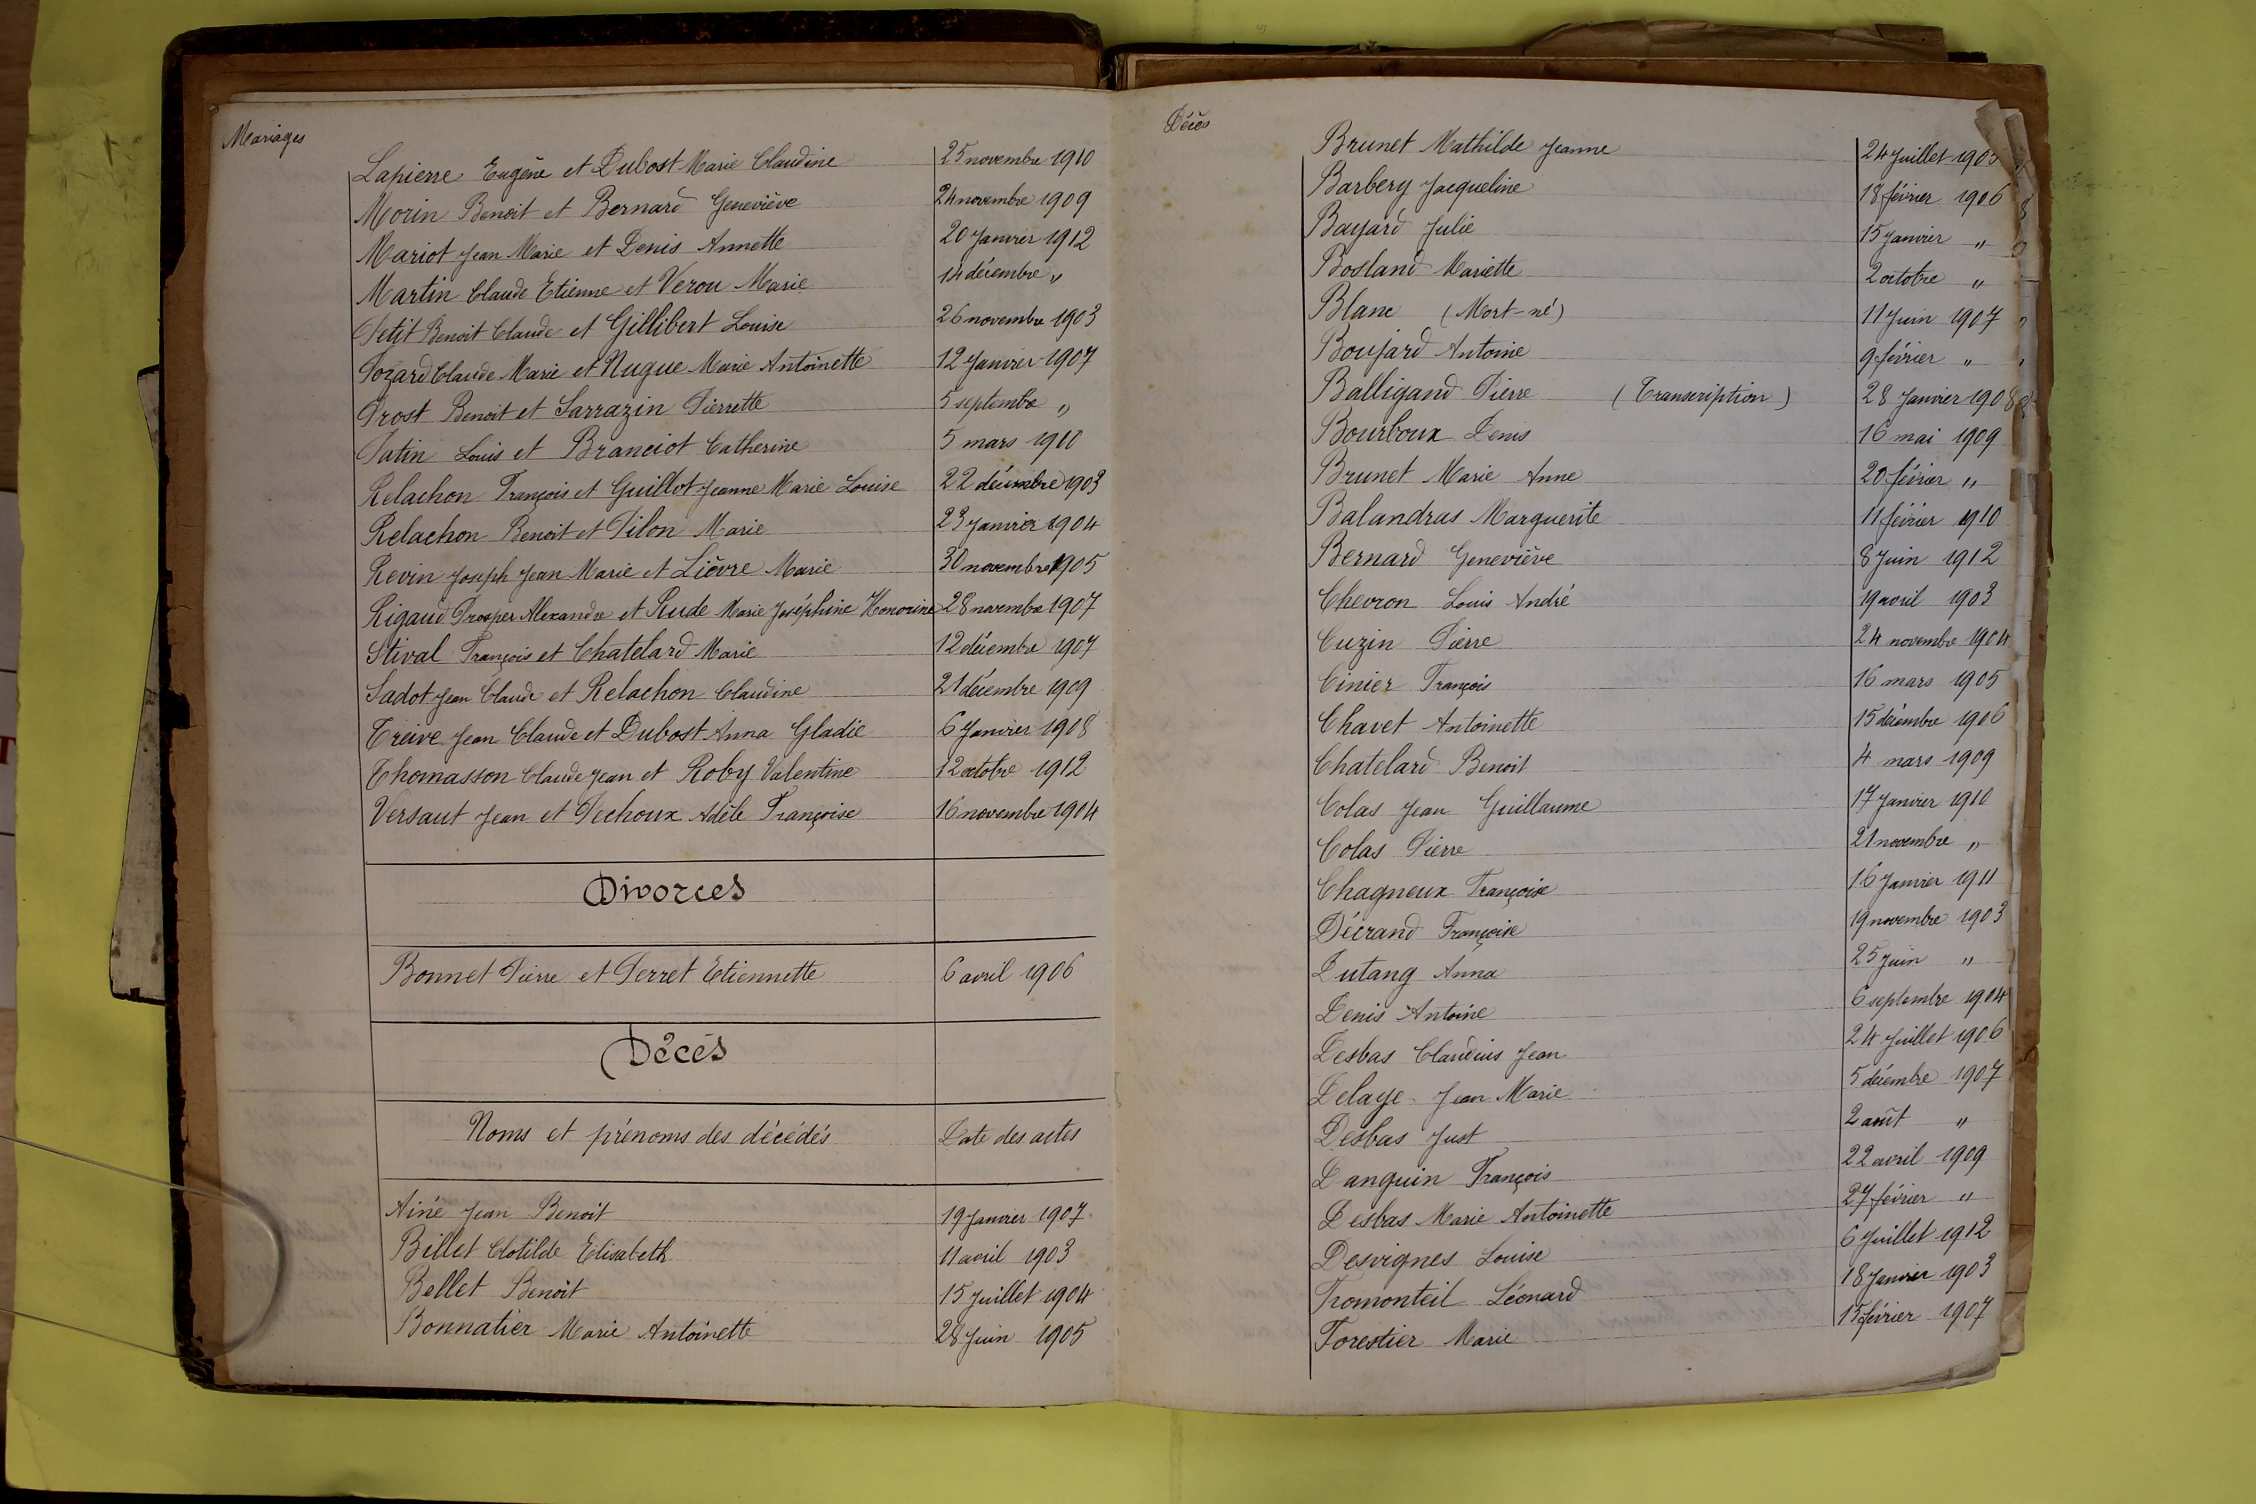 Mariages
Lapierre Eugène et Dubost Marie Claudine 25 novembre 1910
Morin Benoit et Bernard Geneviève 24 novembre 1909
Mariot Jean Marie et Denis Annette 20 Janvier 1912
Martin Claude Etienne et Verou Marie 14 décembre "
Petit Benoit Claude et Gillibert Louise 26 novembre 1903
Pozard Claude Marie et Nugue Marie Antoinette 12 Janvier 1907
Prost Benoit et Sarrazin Pierrette 5 septembre "
Putin Louis et Branciot Catherine 5 mars 1910
Relachon François et Guillot Jeanne Marie Louise 22 décembre 1903
Relachon Benoit et Pilon Marie 23 Janvier 1904
Revin Joseph Jean Marie et Lièvre Marie 30 novembre 1905
Rigaud Prosper Alexandre et Rude Marie Joséphine Honorine 28 novembre 1907
Stival François et Chatelard Marie 12 décembre 1907
Sadot Jean Claude et Relachon Claudine 21 décembre 1909
Treive Jean Claude et Dubost Anna Gladie 6 Janvier 1908
Thomasson Claude Jean et Roby Valentine 12 octobre 1912
Versaut Jean et Dechoux Adèle Françoise 16 novembre 1904
Divorces
Bonnet Pierre et Perret Etiennette 6 avril 1906
Décès
Noms et prénoms des décédés Date des actes
Ainé Jean Benoit 19 Janvier 1907
Billet Clotilde Elisabeth 11 avril 1903
Bellet Benoit 15 Juillet 1904
Bonnatier Marie Antoinette 28 Juin 1905
Décès
Brunet Mathilde Jeanne 24 Juillet 1905
Barbery Jacqueline 18 février 1906
Bayard Julie 15 Janvier "
Bosland Mariette 2 octobre "
Blanc (Mort-né) 11 Juin 1907
Boujard Antoine 9 février "
Balligand Pierre (Transcription) 28 Janvier 1908
Bourboux Denis 16 mai 1909
Brunet Marie Anne 20 février "
Balandras Marguerite 11 février 1910
Bernard Geneviève 8 Juin 1912
Chevron Louis André 19 avril 1903
Cuzin Pierre 24 novembre 1904
Cinier François 16 mars 1905
Chavet Antoinette 15 décembre 1906
Chatelard Benoit 4 mars 1909
Colas Jean Guillaume 17 Janvier 1910
Colas Pierre 21 novembre "
Chagneux Françoise 16 Janvier 1911
Décrand Françoise 19 novembre 1903
Dutang Anna 25 Juin "
Denis Antoine 6 septembre 1904
Desbas Claudius Jean 24 Juillet 1906
Delaye Jean Marie 5 décembre 1907
Desbas Just 2 août "
Danguin François 22 avril 1909
Desbas Marie Antoinette 27 février "
Desvignes Louise 6 Juillet 1912
Fromonteil Léonard 18 Janvier 1903
Forestier Marie 15 février 1907